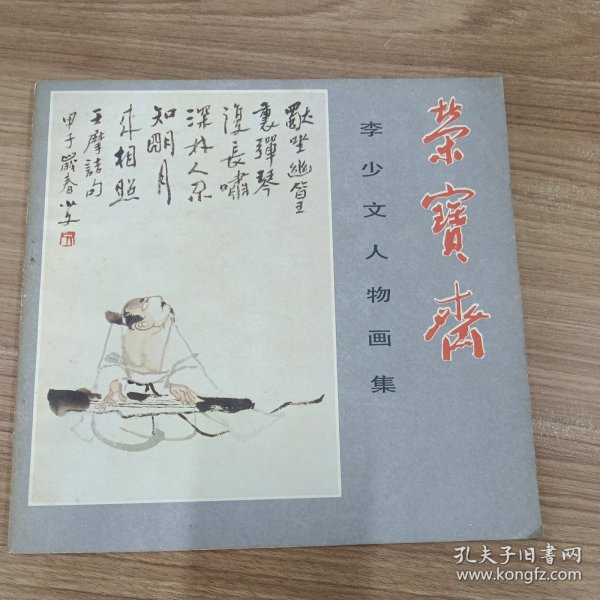 榮寶齋
李少文人物画集
獨坐幽篁
裏彈琴
復長嘯
深林人不
知明月
來相照
王摩詰句
甲子歲春少文
孔夫子旧书网
www.kongfz.com